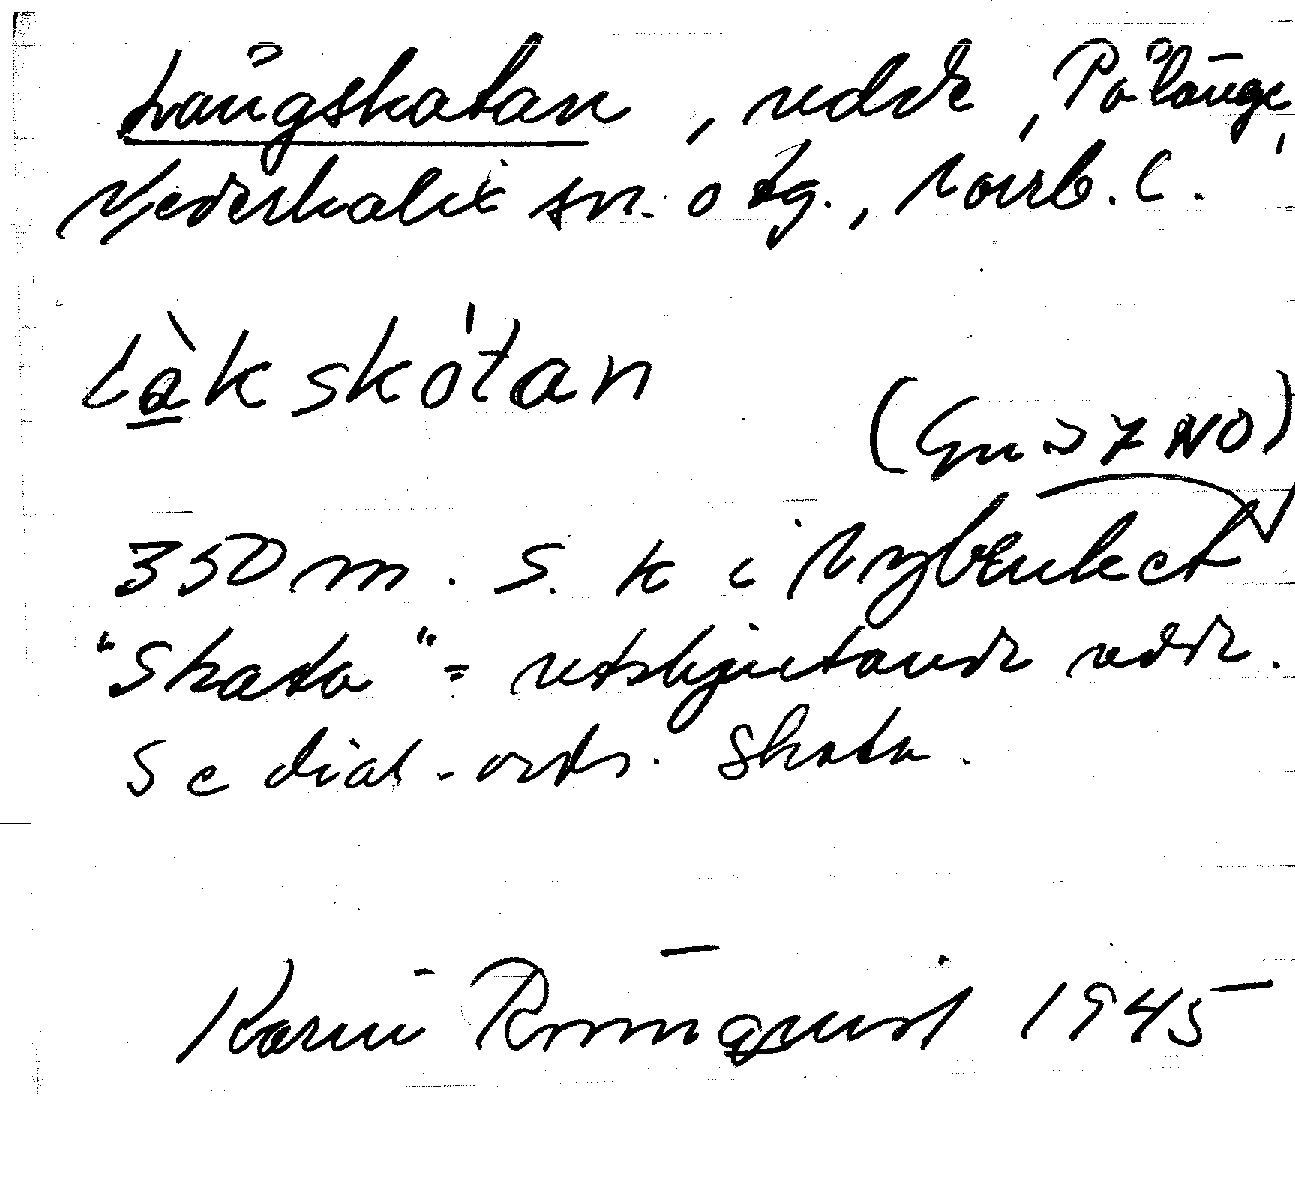 Långskatan, udde, Pålänge,
Nederkalix sn. o tg., Norrb. l.
Làkskótan
(Gu 27 NO)
350 m. S. k i Nybruket
"Skata" = utskjutande udde.
Se dial.-ords. Skata.
Karin Rönnqvist 1945